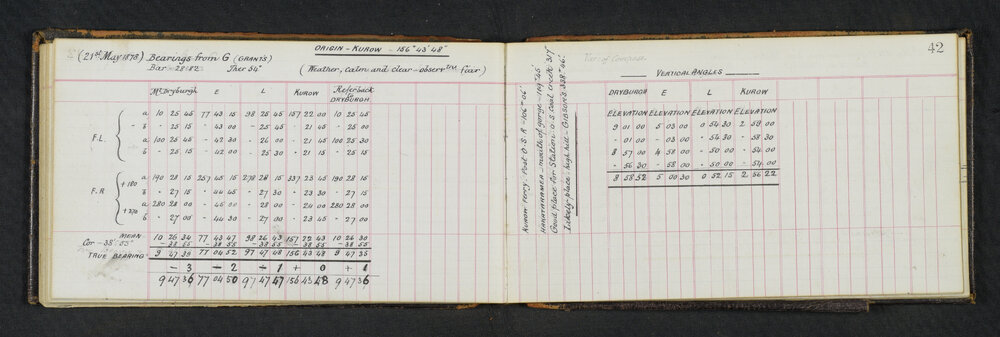 ORIGIN - KUROW - 156° 43' 48"
(21st May 1878) Bearings from G (GRANTS)
Bar 28.82 Ther 54° (Weather, calm and clear - observtns fair)
Mt Dryburgh E L KUROW Referback to DRYBURGH
F.L.
a 10 25 45 77 43 15 98 25 45 157 22 00 10 25 45
b " 25 15 " 43 00 " 25 45 " 21 45 " 25 00
a 100 25 45 " 42 30 " 26 00 " 21 45 100 25 30
b " 25 15 " 42 00 " 25 30 " 21 15 " 25 15
F.R
+180 a 190 28 15 257 45 15 278 28 15 337 23 45 190 28 15
b " 27 15 " 44 45 " 27 30 " 23 30 " 27 15
+270 a 280 28 00 " 46 00 " 28 00 " 24 00 280 28 00
b " 27 00 " 44 30 " 27 00 " 23 45 " 27 00
MEAN 10 26 34 77 43 47 98 26 43 157 22 43 10 26 30
Cor - 38' 55" - 38 55 - 38 55 - 38 55 - 38 55
TRUE BEARING 9 47 39 77 04 52 97 47 48 156 43 48 9 47 35
- 3 - 2 - 1 + 0 + 1
9 47 36 77 04 50 97 47 47 156 43 48 9 47 36
KUROW Ferry. Post O.S.R - 106° 06'
HAKATARAMEA - mouth of gorge - 109° 45'
Good place for Station o.s. Coal creek 317°
Likely place - high hill - GIBSON'S 338° 46'
42
VERTICAL ANGLES
DRYBURGH E L KUROW
ELEVATION ELEVATION ELEVATION ELEVATION
9 01 00 5 03 00 0 54 30 2 59 00
" 01 00 " 03 00 " 54 30 " 58 30
8 57 00 4 58 00 " 50 00 " 54 00
" 56 30 " 58 00 " 50 00 " 54 00
8 58 52 5 00 30 0 52 15 2 56 22